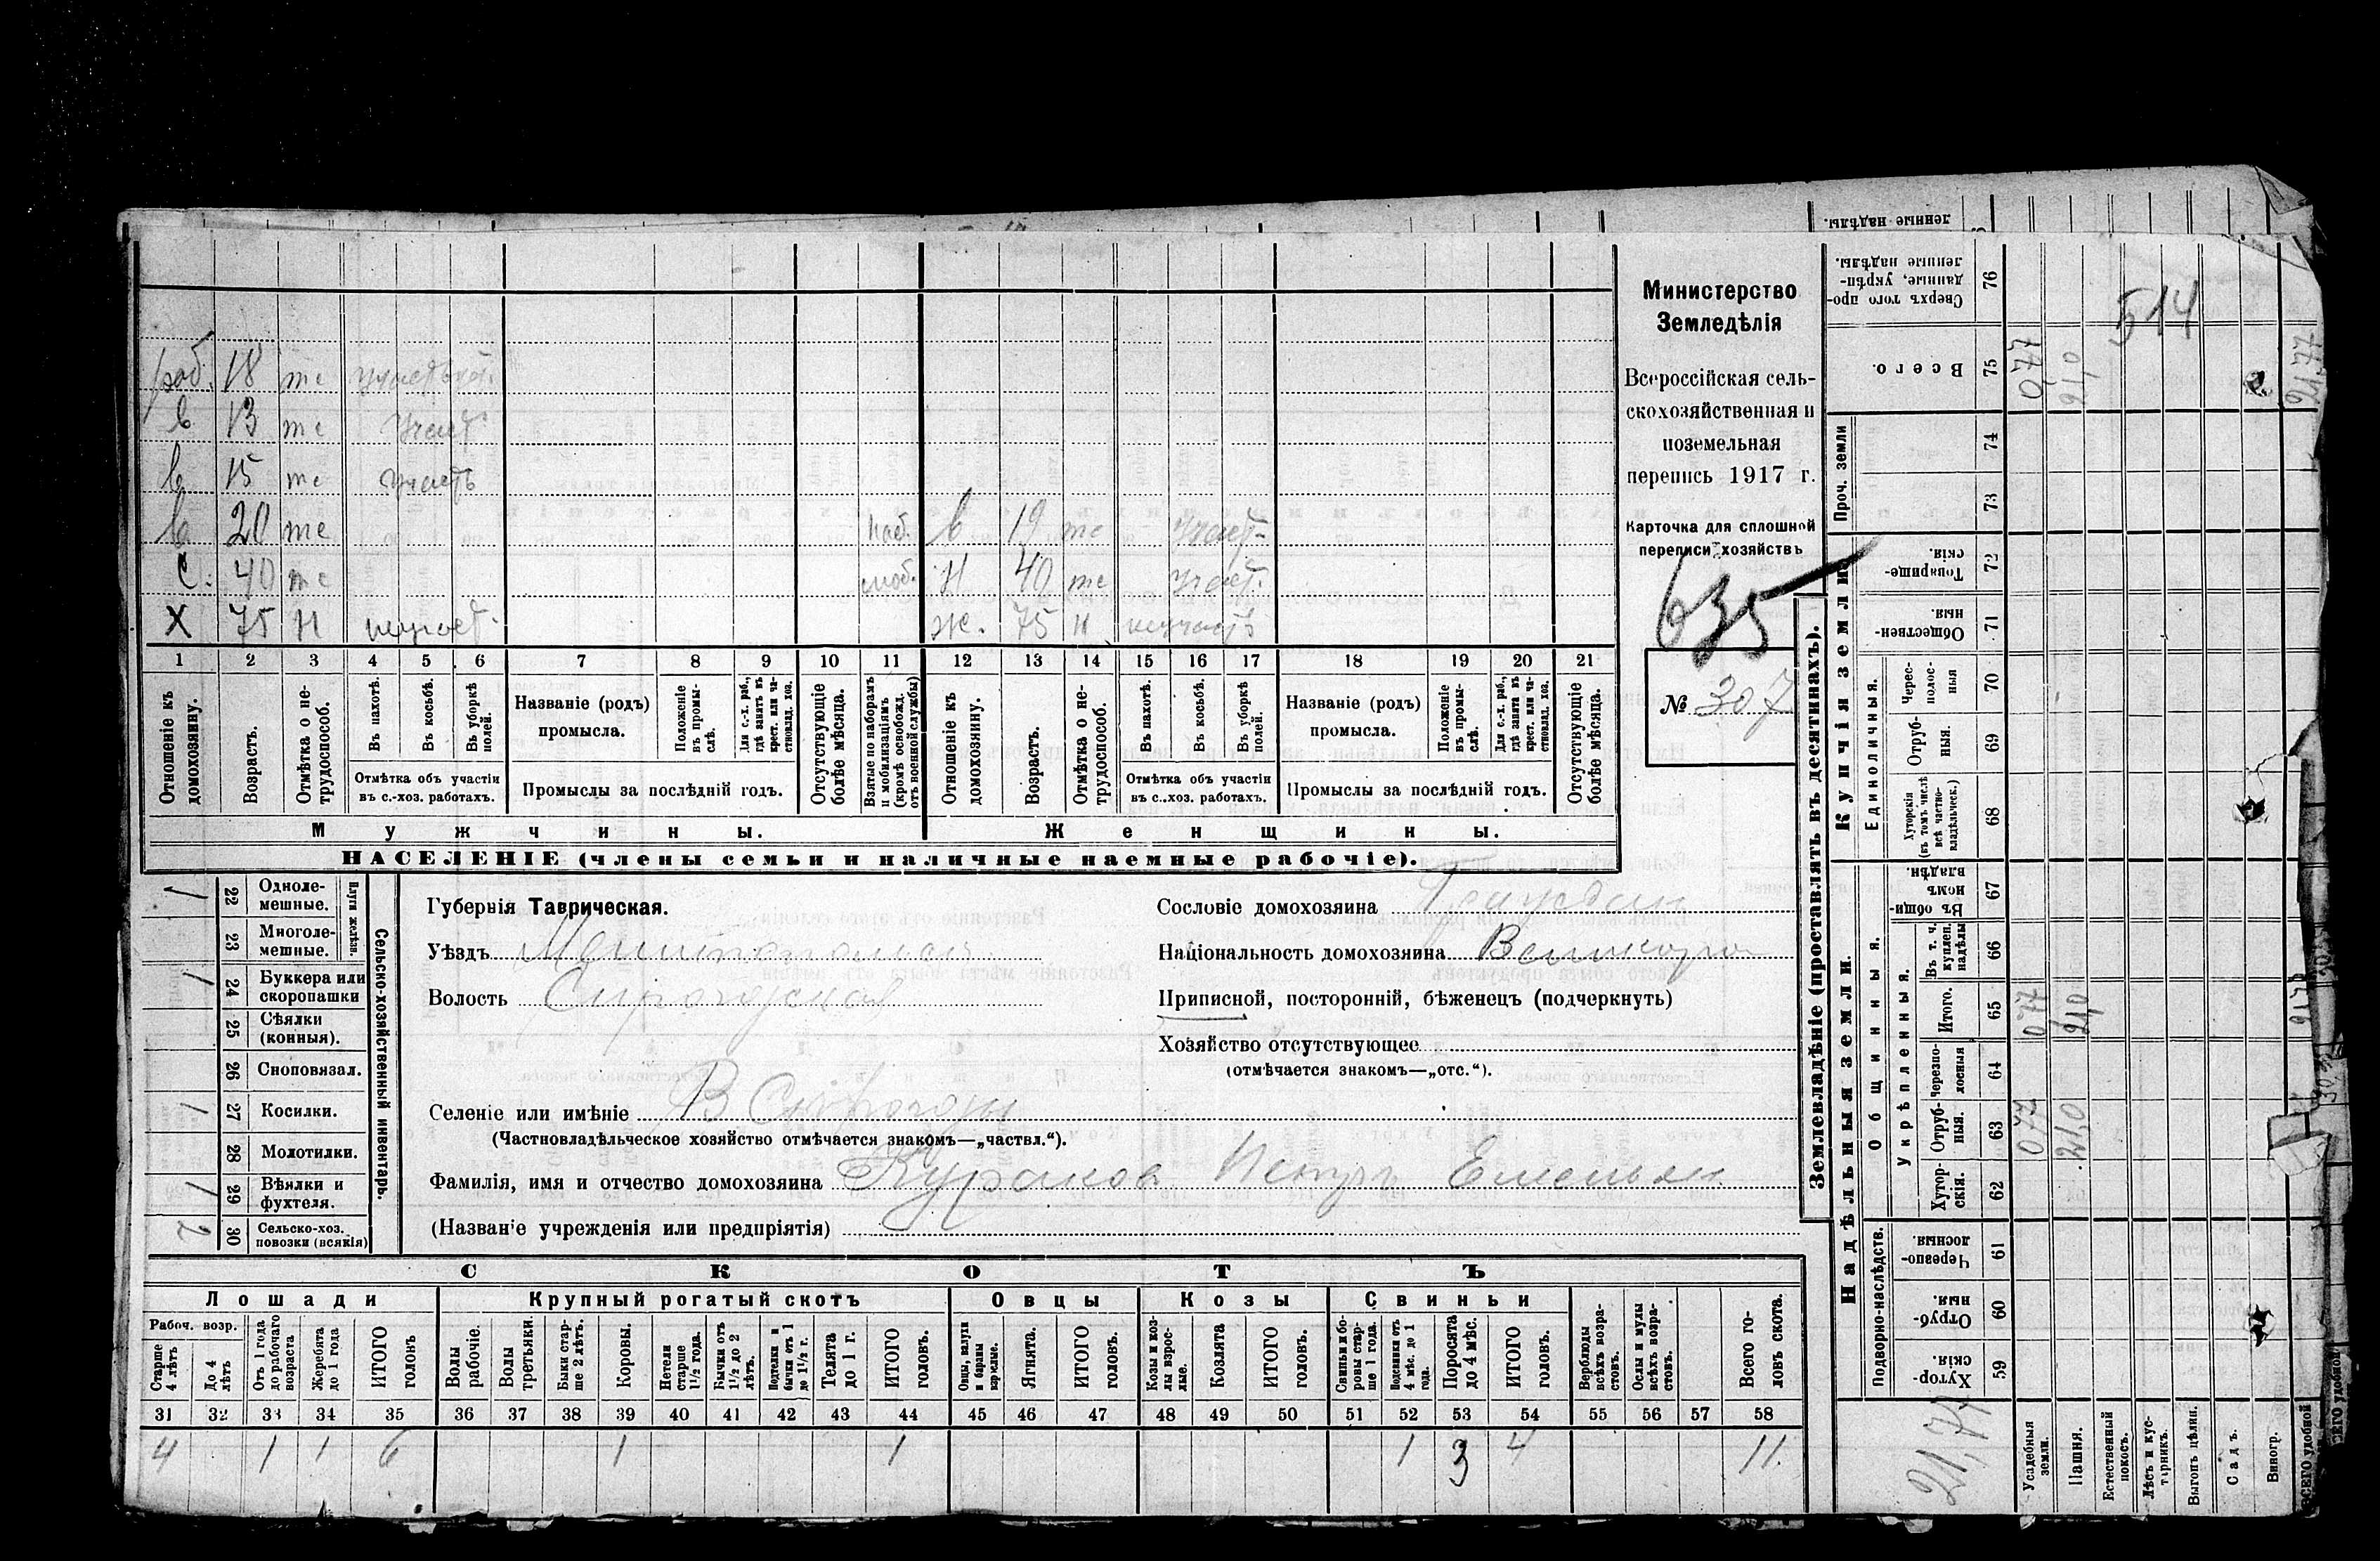 ленные надѣлы.
раб. 18 те
в. 13 те участ.
в 15 те участъ
в 20 те наб. в 19 те участ.
С. 40 те моб. Н 40 те участ.
Х 75 Н неучаст. ж. 75 Н неучастъ
1 2 3 4 5 6 7 8 9 10 11 12 13 14 15 16 17 18 19 20 21
Отношеніе къ домохозяину.
Возрастъ.
Отмѣтка о нетрудоспособ.
Въ пахотѣ.
Въ косьбѣ.
Въ уборкѣ полей.
Отмѣтка объ участіи
въ с.-хоз. работахъ.
Названіе (родъ)
промысла.
Положеніе въ промыслѣ.
Для с.-х. раб., гдѣ занятъ въ крест. или частновлад. хоз.
Промыслы за послѣдній годъ.
Отсутствующіе болѣе мѣсяца.
Взятые по наборамъ и мобилизаціямъ (кромѣ освобожд. отъ военной службы)
Отношеніе къ домохозяину.
Возрастъ.
Отмѣтка о нетрудоспособ.
Въ пахотѣ.
Въ косьбѣ.
Въ уборкѣ полей.
Отмѣтка объ участіи
въ с.-хоз. работахъ.
Названіе (родъ)
промысла.
Положеніе въ промыслѣ.
Для с.-х. раб., гдѣ занята въ крест. или частновлад. хоз.
Промыслы за послѣдній годъ.
Отсутствующіе болѣе мѣсяца.
Мужчины. Женщины.
НАСЕЛЕНІЕ (члены семьи и наличные наемные рабочіе).
Министерство
Земледѣлія
Всероссійская сель-
скохозяйственная и
поземельная
перепись 1917 г.
Карточка для сплошной
переписи хозяйствъ
635
№ 307
Сельско-хозяйственный инвентарь.
Плуги желѣзн.
1 22 Одноле-
мешные.
23 Многоле-
мешные.
1 24 Буккера или
скоропашки
25 Сѣялки
(конныя).
26 Сноповязал.
1 27 Косилки.
28 Молотилки.
1 29 Вѣялки и
фухтеля.
2 30 Сельско-хоз.
повозки (всякія)
Губернія Таврическая.
Уѣздъ Мелитопольскій
Волость Сирогозская
Селеніе или имѣніе В Сирогозы
(Частновладѣльческое хозяйство отмѣчается знакомъ—„частвл.“).
Фамилія, имя и отчество домохозяина Куракова Петръ Емельян
(Названіе учрежденія или предпріятія)
Сословіе домохозяина Граждан
Національность домохозяина Великоро
Приписной, посторонній, бѣженецъ (подчеркнуть)
Хозяйство отсутствующее
(отмѣчается знакомъ—„отс.“).
СКОТЪ
Лошади Крупный рогатый скотъ Овцы Козы Свиньи
Рабоч. возр.
Старше 4 лѣтъ
До 4 лѣтъ
Отъ 1 года до рабочаго возраста
Жеребята до 1 года
ИТОГО головъ
Волы рабочіе.
Волы третьяки.
Быки старше 2 лѣтъ.
Коровы.
Нетели старше 1½ года.
Бычки отъ 1½ до 2 лѣтъ.
Подтелки и бычки отъ 1 до 1½ г.
Телята до 1 г.
ИТОГО головъ.
Овцы, валухи и бараны взрослые.
Ягнята.
ИТОГО головъ.
Козы и козлы взрослые.
Козлята
ИТОГО головъ.
Свиньи и боровы старше 1 года.
Подсвинки отъ 4 мѣс. до 1 года.
Поросята до 4 мѣс.
ИТОГО головъ.
Верблюды всѣхъ возрастовъ.
Ослы и мулы всѣхъ возрастовъ.
Всего головъ скота.
31 32 33 34 35 36 37 38 39 40 41 42 43 44 45 46 47 48 49 50 51 52 53 54 55 56 57 58
4 1 1 6 1 1 1 3 4 11.
Землевладѣніе (проставлять въ десятинахъ).
Надѣльныя земли. Купчія земли.
Подворно-наслѣдств.
Общинныя.
Укрѣпленныя.
Единоличныя.
Проч. земли
Хуторскія. 59
Отрубныя. 60
Черезполосныя 61
Хуторскія. 62
Отрубныя. 63 0,77 21,0
Черезполосныя 64
Итого. 65 0,77 21,0
Въ т. ч. куплен. надѣлы 66
Въ общинномъ владѣн. 67
Хуторскія (въ томъ числѣ всѣ частновладѣльческ.) 68
Отрубныя. 69
Чересполосныя 70
Общественныя. 71
Товарищескія. 72
73
74
Всего. 75 0,77 21,0 21,77
Сверхъ того проданные, укрѣпленные надѣлы. 76
514
21,77
Усадебныя земли.
Пашня.
Естественный покосъ.
Лѣсъ и кустарникъ.
Выгонъ цѣлин.
Садъ.
Виногр.